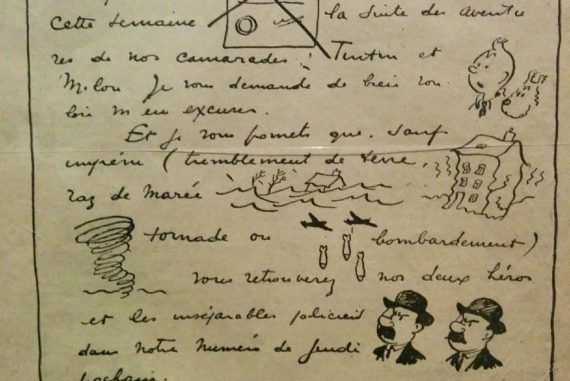 cette semaine la suite des aventu
res de nos camarades : Tintin et
Milou. Je vous demande de bien vou
loir m'en excuser.
Et je vous promets que, sauf
imprévu (tremblement de terre,
raz de marée
tornade ou bombardement)
vous retrouverez nos deux héros
et les inséparables policiers
dans notre numéro de jeudi
prochain.